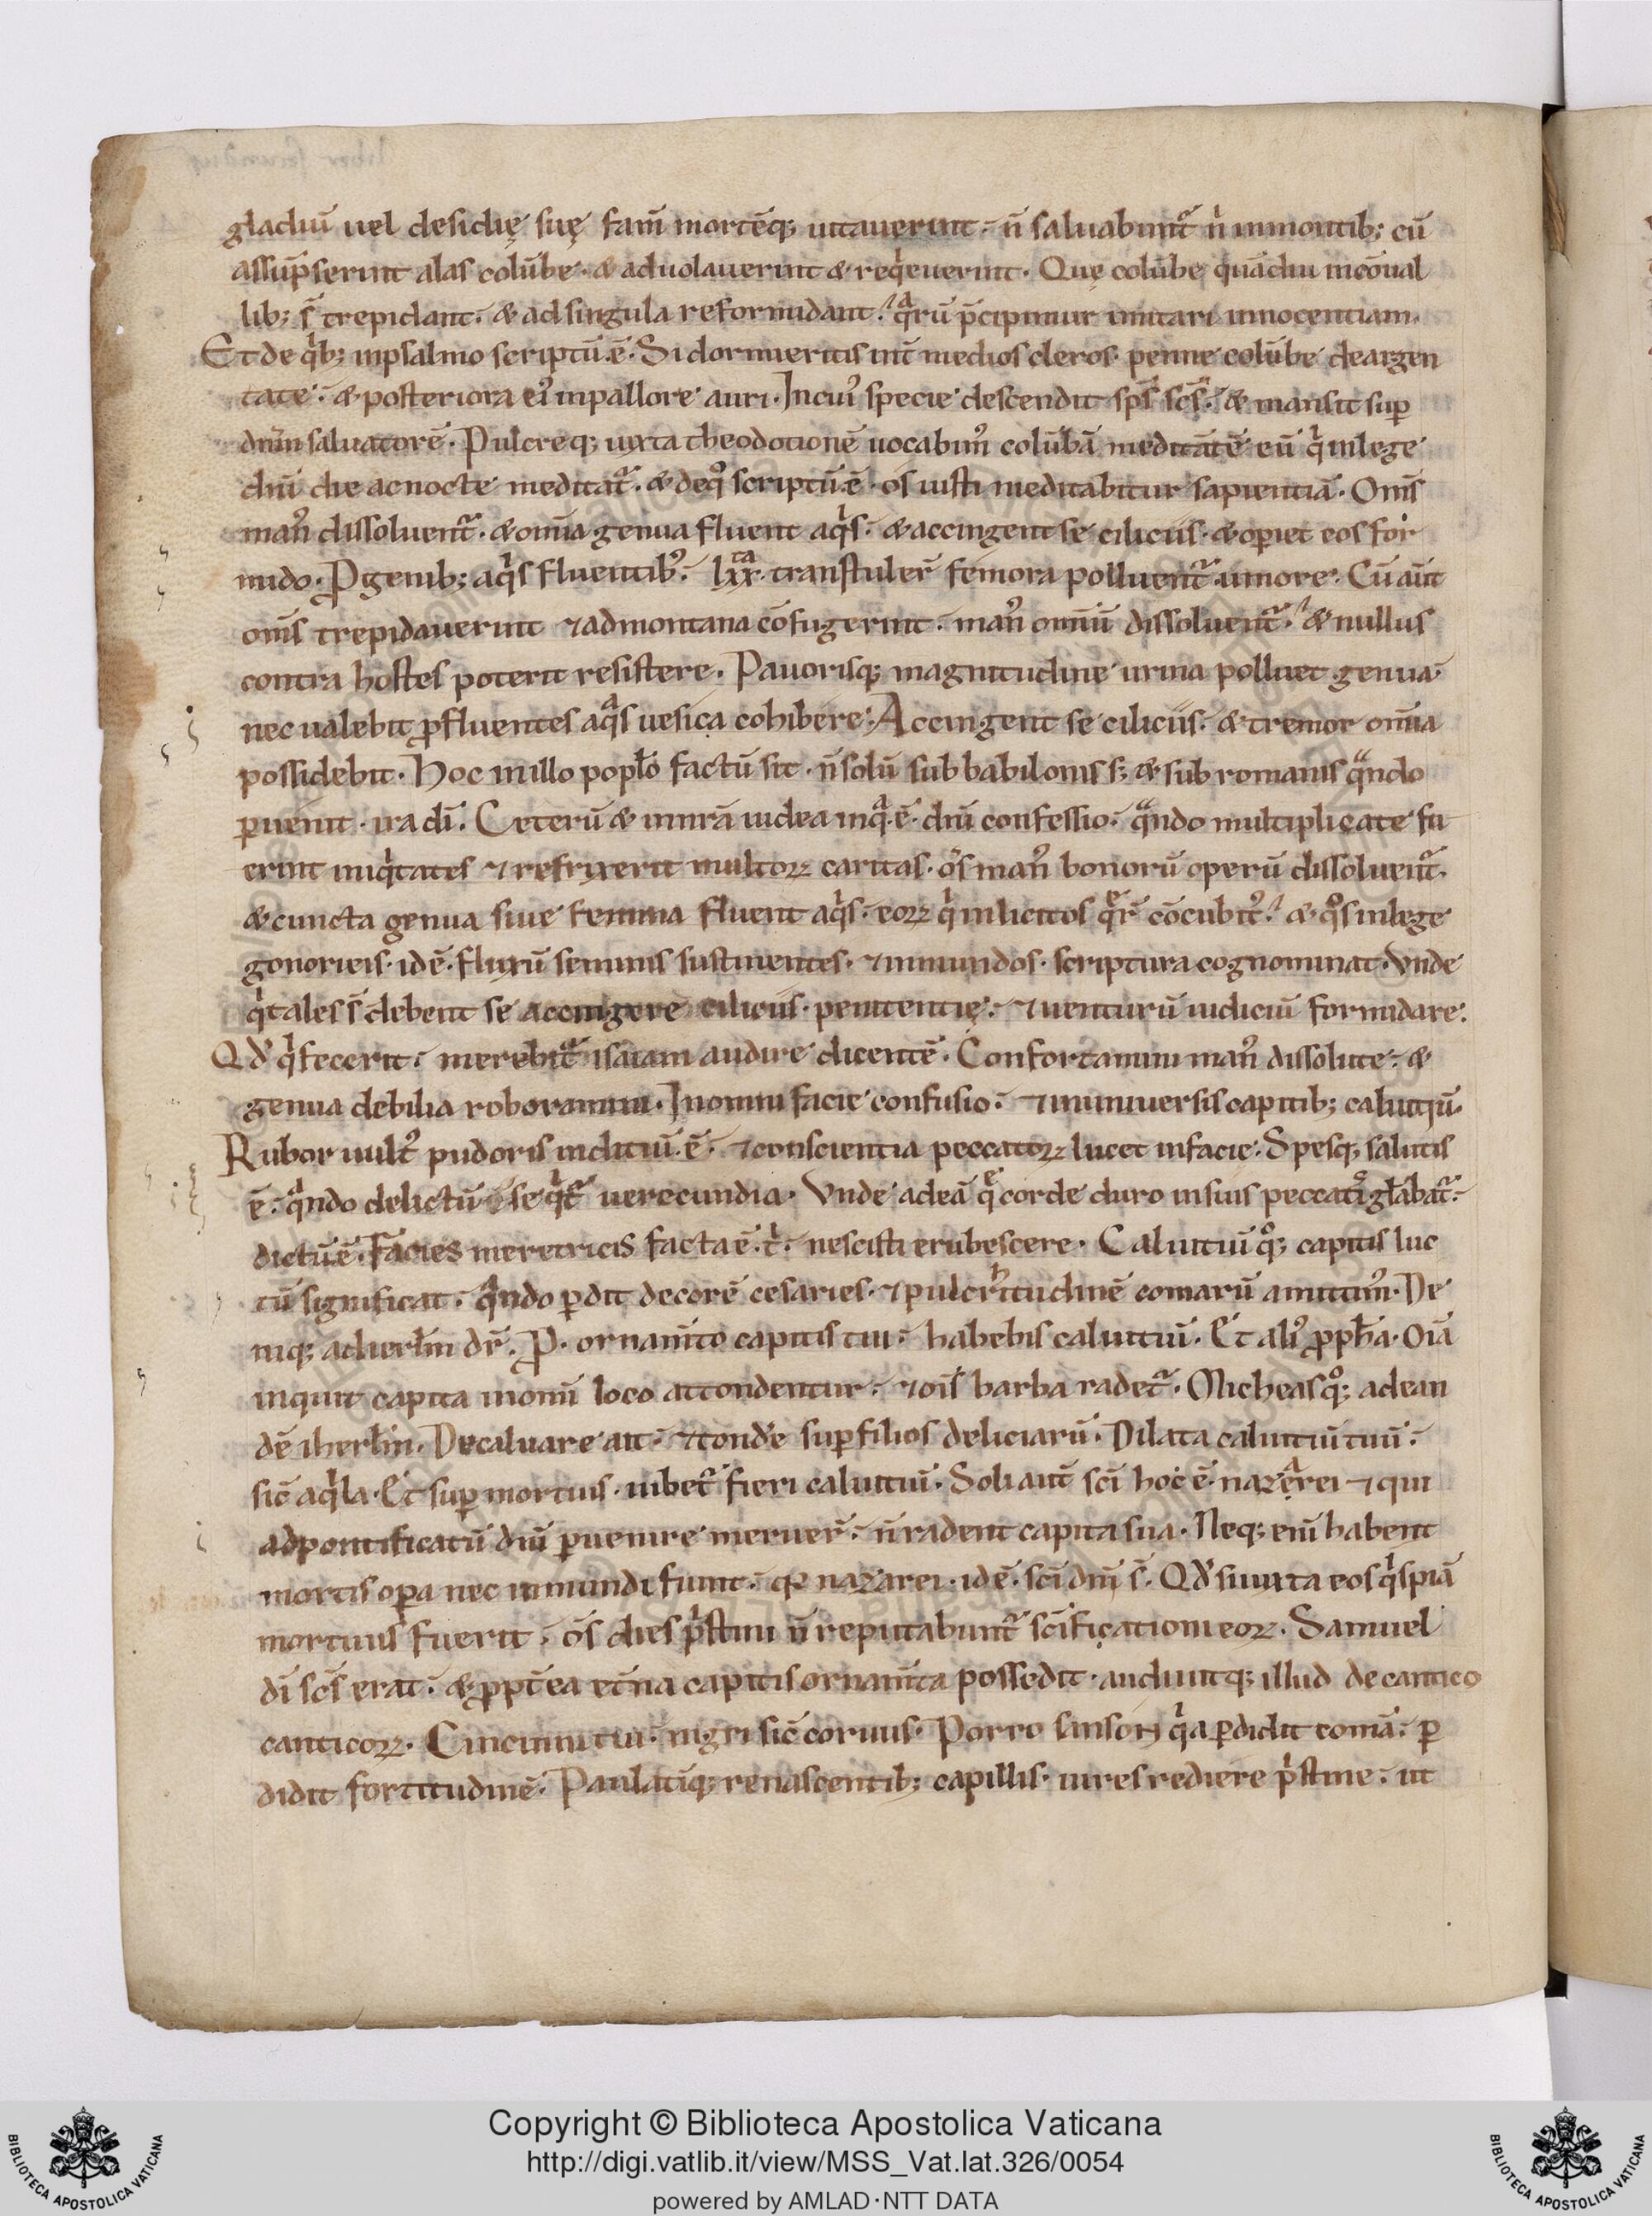 gladiū uel desidię suę fam̄ mortēq; uitauerint. n̄ saluabunt᷑ nͥ inmontib; cū
assūpserint alas colūbe. & aduolauerint & reqͥeuerint. Quę colūbe quādiu incōual
lib; s̄ trepidant. & adsingula reformidant. qͣrū p̄cipimur imitari innocentiam.
Et de qͥb; inpsalmo scriptū.ē. Si dormieritis int̄ medios cleros. penne colūbe deargen
tate. & posteriora eiꝰ inpallore auri. Incuiꝰ specie descendit sps̄ scs̄. & mansit suꝑ
dn̄m saluatorē. Pulcreq; iuxta theodotionē uocabimꝰ colūbā meditātē eū qͥ inlege
dn̄i die acnocte meditat᷑. & deqͦ scriptū.ē. os iusti meditabitur sapientiā. Om̄s
manꝰ dissoluent᷑. & om̄ia genua fluent aqͥs. & accingent se ciliciis. & oꝑiet eos for
mido. P̱ genib; aqͥs fluentibꝰ. lxx.ta transtuler̄ femora polluent᷑ umore. Cū aūt
om̄s trepidauerint ⁊ admontana cōfugerint. manꝰ omniū dissoluent᷑. & nullus
contra hostes poterit resistere. Pauorisq; magnitudine urina polluet genua.
nec ualebit ꝓfluentes aqͣs uesica cohibere. Accingent se ciliciis. & tremor om̄ia
possidebit. Hoc inillo popl̄o factū sit. n̄solū sub babiloniis s; & sub romanis qͣndo
ꝑuenit. ira dī. Ceterū & inurā iudea inqͣ.ē. dn̄i confessio. qͣndo multiplicate fu
erint iniqͥtates ⁊ refrixerit multoꝝ caritas. ōs manꝰ bonorū operū dissoluent᷑.
& cuncta genua siue femina fluent aqͥs. eoꝝ qͥ inlicitos qͤr̄ cōcubitꝰ. & qͦs inlege
gonorieis. idē. fluxū seminis sustinentes. ⁊ inmundos. scriptura cognominat. Vnde
qͥ tales s̄ debent se accingere ciliciis. penitentię. ⁊ uenturū iudiciū formidare.
Qd̄ qͥ fecerit. merebit᷑ isaiam audire dicentē. Confortamini manꝰ dissolute. &
genua debilia roboramini. Inomni facie confusio. ⁊ inuniuersis capitib; caluitiū.
Rubor uultꝰ pudoris inditiū.ē. ⁊ conscientia peccatoꝝ lucet infacie. Spesq; salutis
ē. qͣndo delictū seqͥt᷑ uerecundia. Vnde adeā qͤ corde duro insuis peccatꝭ gl̄abat᷑.
dictū.ē. Facies meretricis facta ē. tͥ. nescisti erubescere. Caluitiū qͦ; capitis luc
tū significat. qͣndo ꝑdit decorē cesaries. ⁊ pulcrͪitudinē comarū amittimꝰ. De
niq; adierl̄m dr̄. P̱. ornam̄to capitis tui. habebis caluitiū. Et aliꝰ ꝓpha. Oīa
inquit capita inomī loco attondentur. ⁊ oīs barba radet᷑. Micheas qͦ; adean
dē iherl̄m. Decaluare ait. ⁊ tondē suꝑ filios deliciarū. Dilata caluitiū tuū.
sic̄ aqͥla. Et suꝑ mortuis. iubet᷑ fieri caluitiū. Soli aut̄ scī hoc ē. nazͣrei ⁊ qui
adpontificatū dn̄i ꝑuenire meruer̄. n̄radent capita sua. Neq; enī habent
mortis oꝑa nec inmundi fiunt. qꝛ nazarei. idē. scī dn̄i s̄. Qd̄ siiuxta eos qͥspiā
mortuus fuerit. ōs dies pͥstini n̄ reputabunt᷑ scīficationi eoꝝ. Samuel
dī scs̄ erat. & ꝓpt̄ea et̄na capitis ornam̄ta possedit. audiuitq; illud de cantico
canticoꝝ. Cincinni tui. nigri sic̄ coruus. Porro sanson qͥa ꝑdidit comā. ꝑ
didit fortitudinē. Paulatīq; renascentib; capillis. uires rediere pͥstine. ut
Copyright © Biblioteca Apostolica Vaticana
http://digi.vatlib.it/view/MSS_Vat.lat.326/0054
powered by AMLAD·NTT DATA
BIBLIOTECA APOSTOLICA VATICANA
BIBLIOTECA APOSTOLICA VATICANA